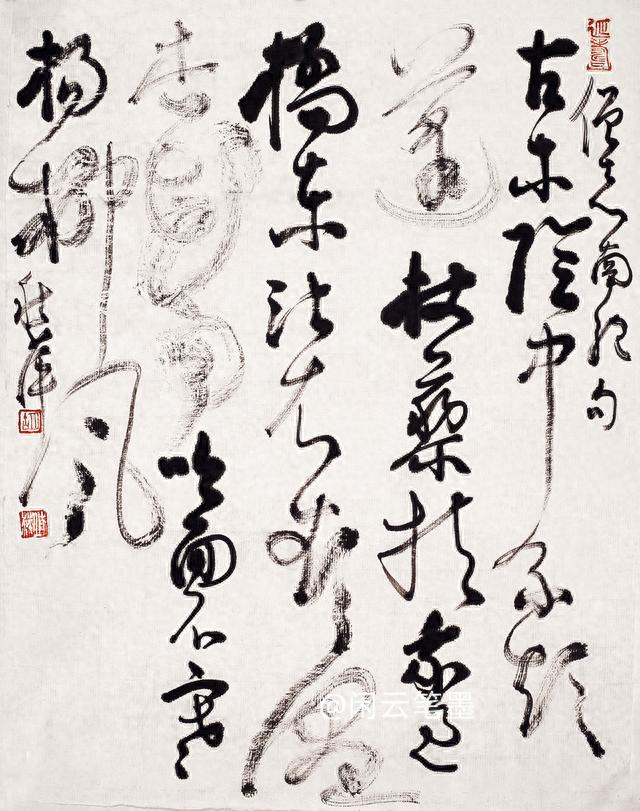 僧志南绝句
古木陰中系短
篷杖藜扶我過
橋東沾衣欲濕
杏花雨吹面不寒
杨柳风
@闲云笔墨